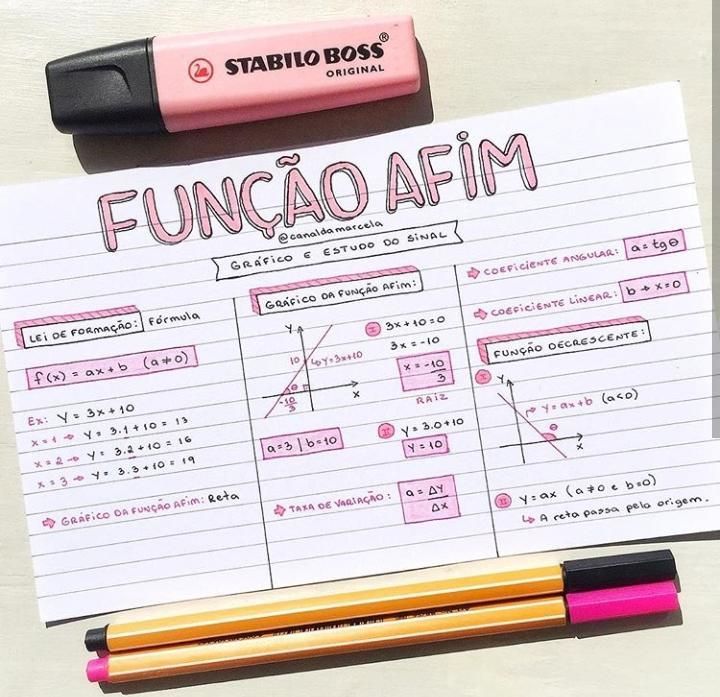 STABILO BOSS®
ORIGINAL
FUNÇÃO AFIM
@canaldamarcela
GRÁFICO E ESTUDO DO SINAL
LEI DE FORMAÇÃO: Fórmula
f(x) = ax+b (a≠0)
Ex: Y = 3x+10
x = 1 → Y = 3.1+10 = 13
x = 2 → Y = 3.2+10 = 16
x = 3 → Y = 3.3+10 = 19
⇨ GRÁFICO DA FUNÇÃO AFIM: Reta
GRÁFICO DA FUNÇÃO AFIM:
Y
10
↳ Y=3x+10
θ
-10/3
x
I 3x+10=0
3x = -10
x = -10/3
RAIZ
a=3 | b=10
II Y = 3.0+10
Y = 10
⇨ TAXA DE VARIAÇÃO: a = ΔY/Δx
⇨ COEFICIENTE ANGULAR: a = tgθ
⇨ COEFICIENTE LINEAR: b → x=0
FUNÇÃO DECRESCENTE:
I
Y
Y = ax+b (a<0)
θ
x
II Y=ax (a≠0 e b=0)
↳ A reta passa pela origem.